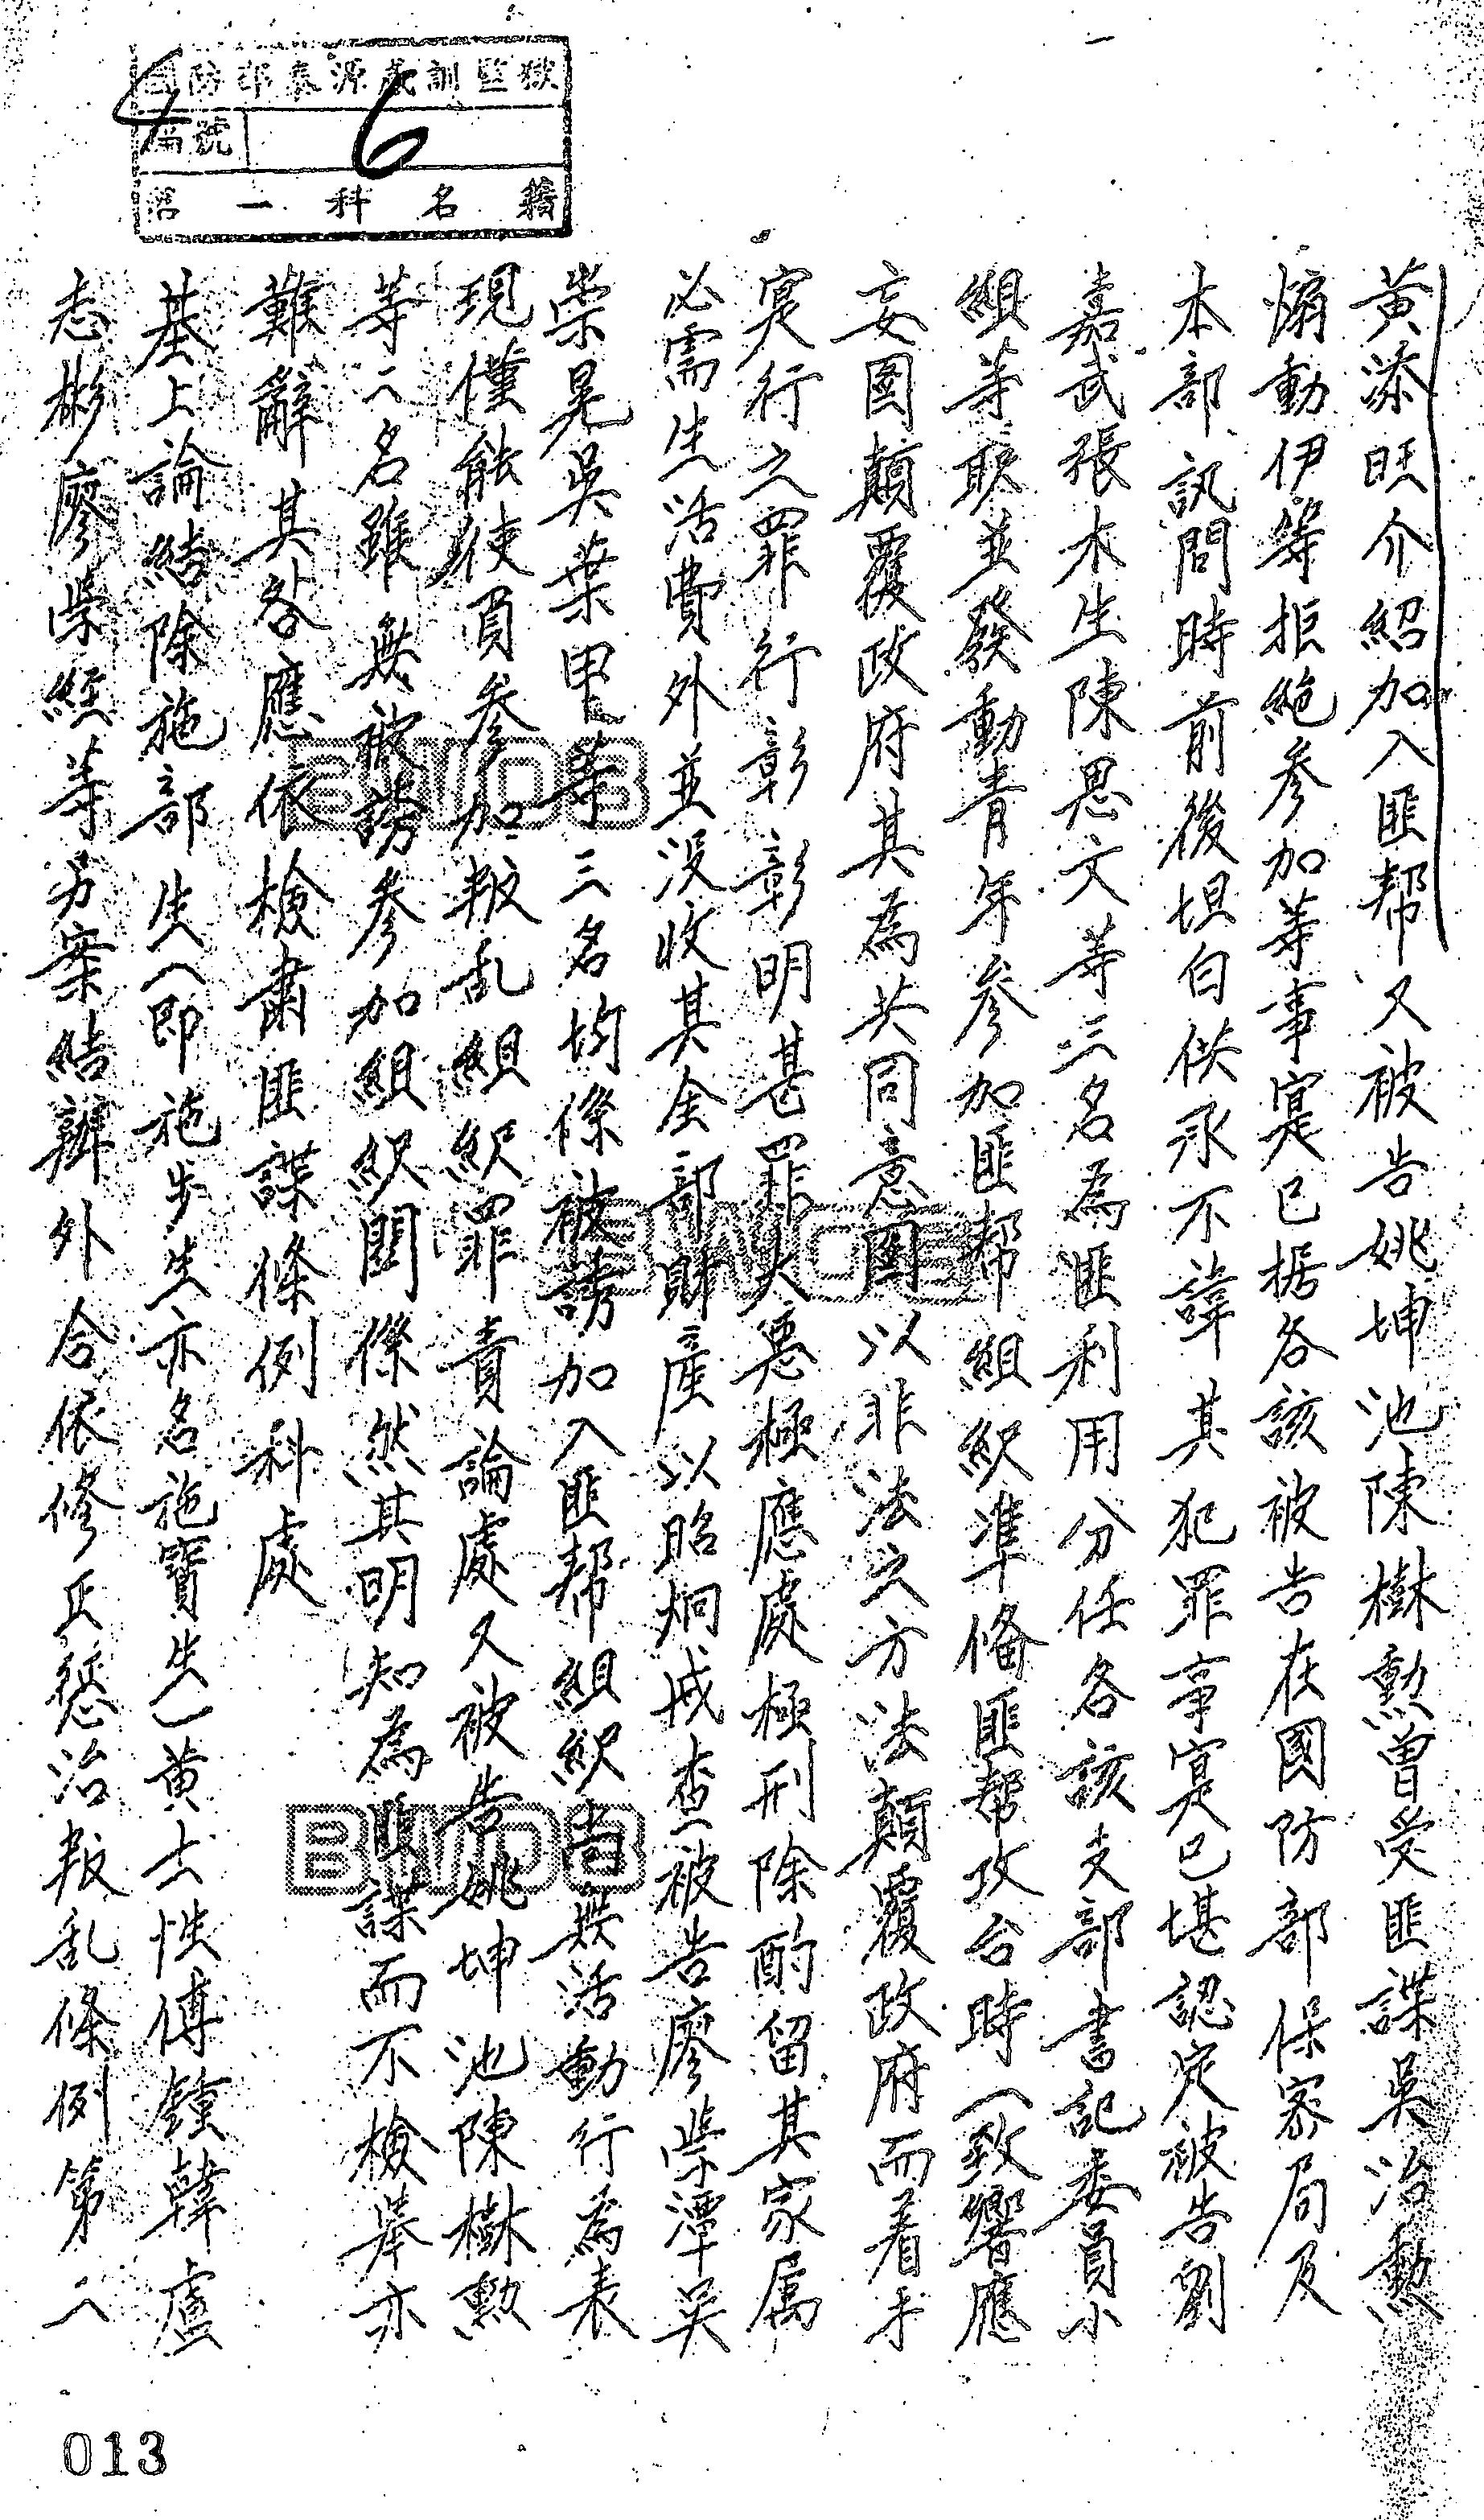 國防部泰源感訓監獄
編號 6
第一科名籍
黃添旺介紹加入匪帮又被告姚坤池陳樹勲曾受匪諜吳治勲
煽動伊等拒絶參加等事寔已据各該被告在國防部保密局及
本部訊問時前後坦白供承不諱其犯罪事寔已堪認定被告劉
嘉武張木生陳思文等三名為匪利用分任各該支部書記委員小
組等职並發動青年參加匪帮組织準備匪帮攻台時一致響應
妄图顛覆政府其為共同意图以非法之方法顛覆政府而着手
寔行之罪行彰彰明甚罪大惡極應處極刑除酌留其家属
必需生活費外並没收其全部財產以昭炯戒查被告廖崇潭吳
崇晃吳葉甲等三名均係被誘加入匪帮組织尚無活動行為表
現僅能使負參加叛乱組织罪責論處又被告姚坤池陳樹勲
等二名雖無被誘參加組织関係然其明知為匪諜而不檢舉亦
難辭其咎應依檢肅匪諜條例科處
基上論結除施部生(即施步生亦名施寶生)黄士性傅鐘韓盧
志彬廖崇經等另案結辦外合依修正懲治叛乱條例第二
BWDB
BWDB
BWDB
013